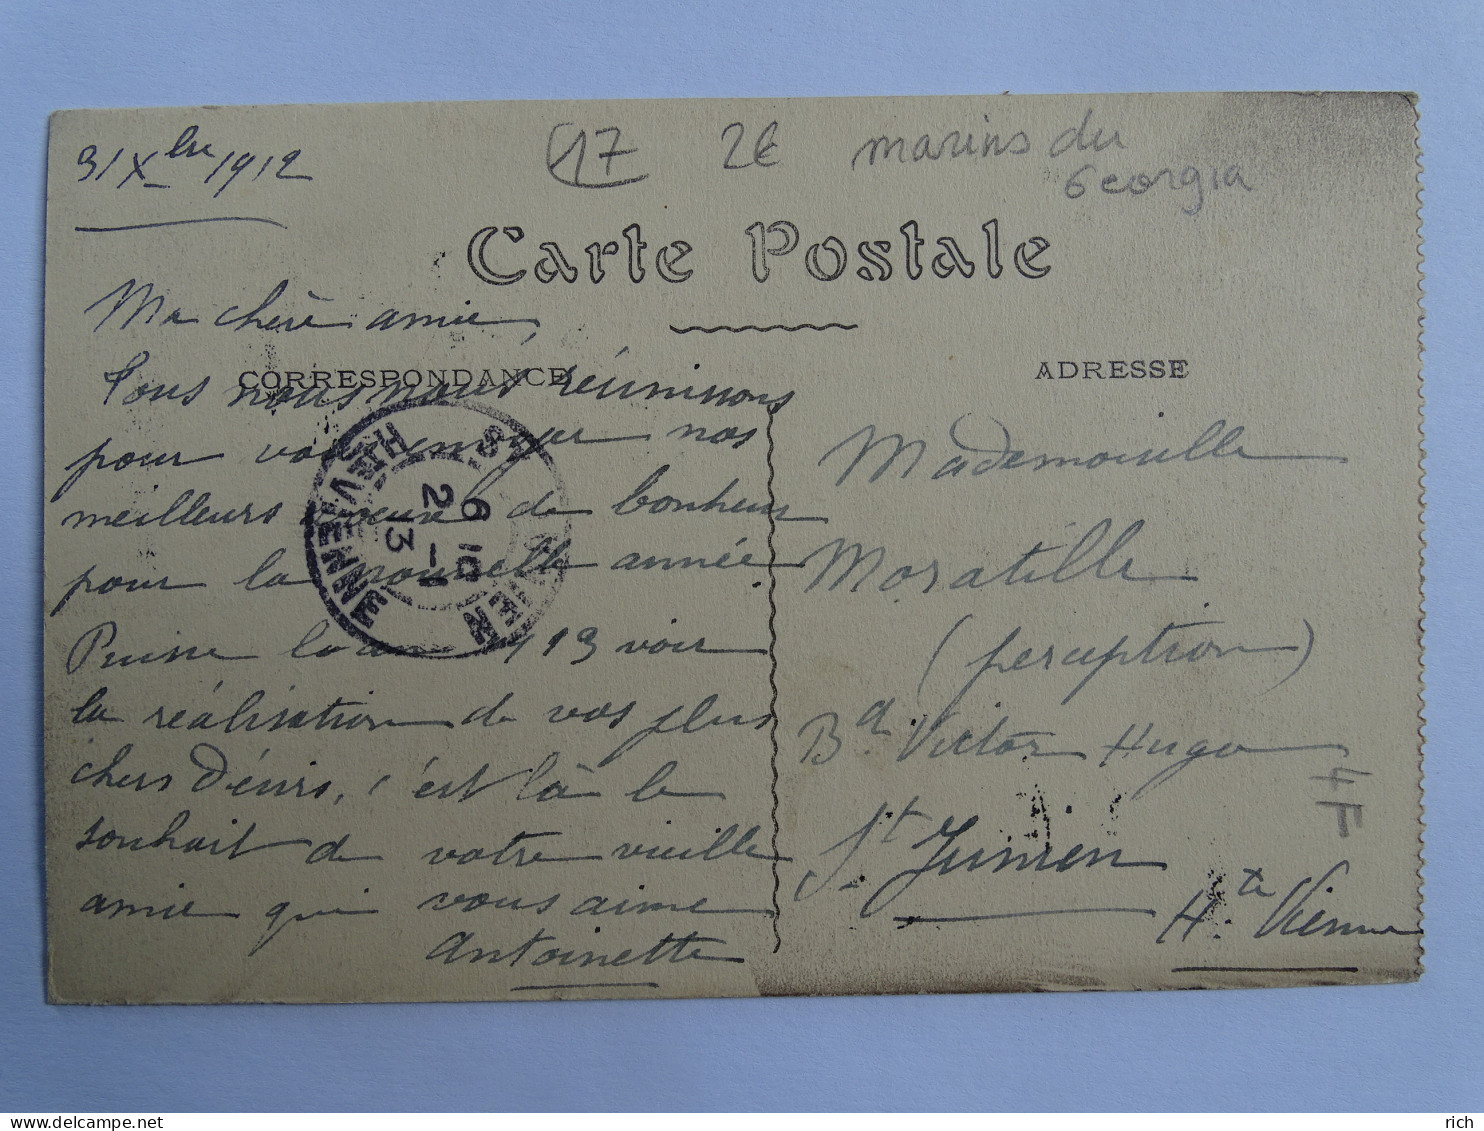 31 Xbre 1912
17 2€ marins du
Georgia
Carte Postale
Ma chère amie,
CORRESPONDANCE
Tous nous nous réunissons
pour vous envoyer nos
meilleurs voeux de bonheur
pour la nouvelle année
Puisse l'an 1913 voir
la réalisation de vos plus
chers désirs, c'est là le
souhait de votre vieille
amie qui vous aime
Antoinette
ADRESSE
Mademoiselle
Moratille
(perception)
Bd Victor Hugo
St Junien
Hte Vienne
4F
ST JUNIEN
6 10
2 -1
13
HTE VIENNE
rich